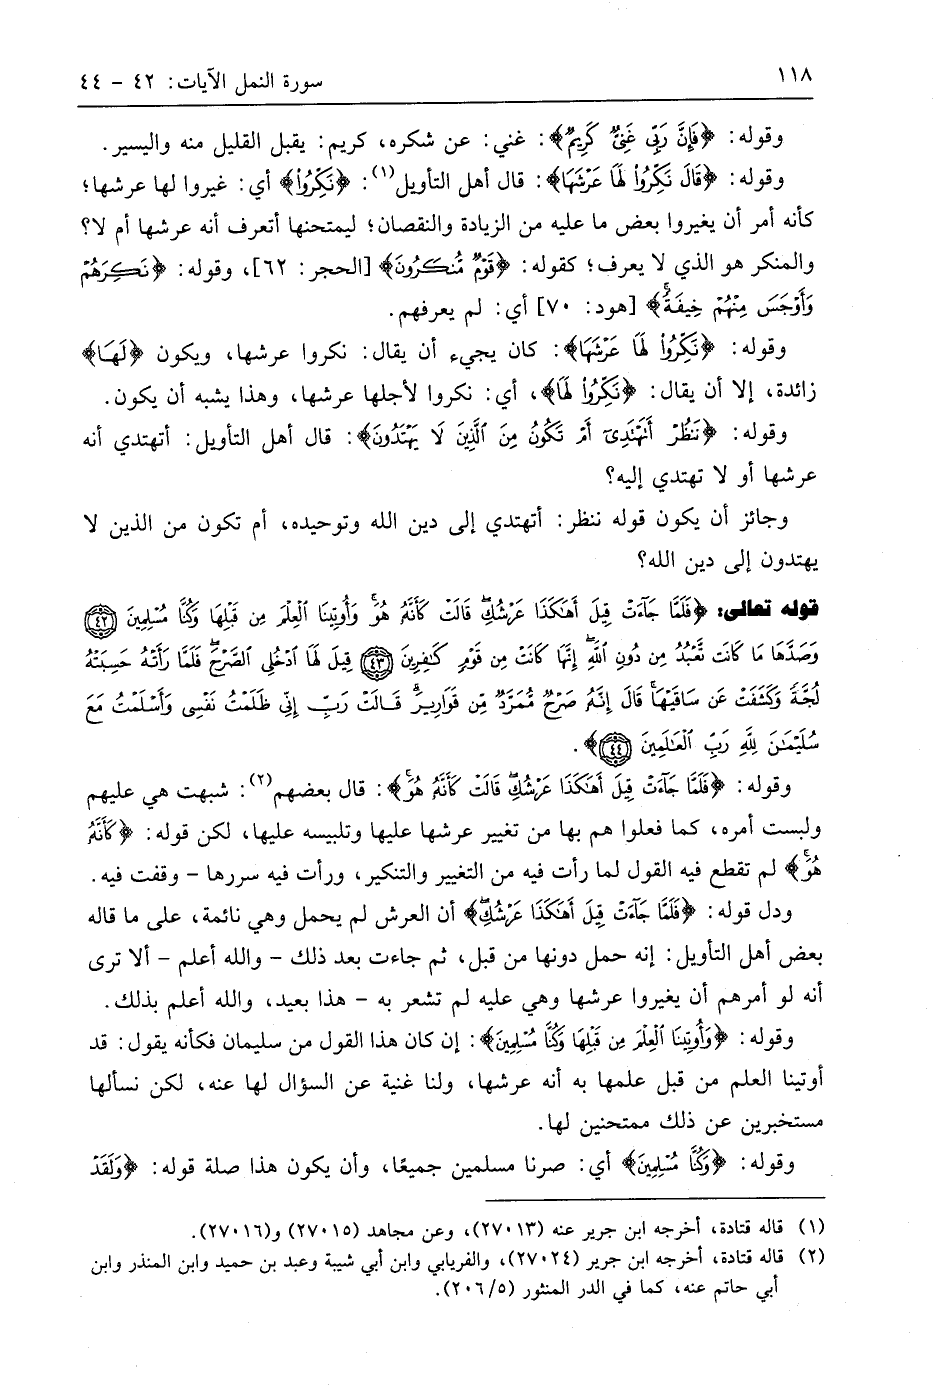 ١١٨
سورة النمل الآيات: ٤٢ - ٤٤
وقوله: ﴿فَإِنَّ رَبِّى غَنِىٌّ كَرِيمٌ﴾: غني: عن شكره، كريم: يقبل القليل منه واليسير.
وقوله: ﴿قَالَ نَكِّرُوا۟ لَهَا عَرْشَهَا﴾: قال أهل التأويل(١): ﴿نَكِّرُوا۟﴾ أي: غيروا لها عرشها؛
كأنه أمر أن يغيروا بعض ما عليه من الزيادة والنقصان؛ ليمتحنها أتعرف أنه عرشها أم لا؟
والمنكر هو الذي لا يعرف؛ كقوله: ﴿قَوْمٌ مُّنكَرُونَ﴾ [الحجر: ٦٢]، وقوله: ﴿نَكِرَهُمْ
وَأَوْجَسَ مِنْهُمْ خِيفَةً﴾ [هود: ٧٠] أي: لم يعرفهم.
وقوله: ﴿نَكِّرُوا۟ لَهَا عَرْشَهَا﴾: كان يجيء أن يقال: نكروا عرشها، ويكون ﴿لَهَا﴾
زائدة، إلا أن يقال: ﴿نَكِّرُوا۟ لَهَا﴾، أي: نكروا لأجلها عرشها، وهذا يشبه أن يكون.
وقوله: ﴿نَنظُرْ أَتَهْتَدِىٓ أَمْ تَكُونُ مِنَ ٱلَّذِينَ لَا يَهْتَدُونَ﴾: قال أهل التأويل: أتهتدي أنه
عرشها أو لا تهتدي إليه؟
وجائز أن يكون قوله ننظر: أتهتدي إلى دين الله وتوحيده، أم تكون من الذين لا
يهتدون إلى دين الله؟
قوله تعالى: ﴿فَلَمَّا جَآءَتْ قِيلَ أَهَٰكَذَا عَرْشُكِ ۖ قَالَتْ كَأَنَّهُۥ هُوَ ۚ وَأُوتِينَا ٱلْعِلْمَ مِن قَبْلِهَا وَكُنَّا مُسْلِمِينَ ٤٢
وَصَدَّهَا مَا كَانَت تَّعْبُدُ مِن دُونِ ٱللَّهِ ۖ إِنَّهَا كَانَتْ مِن قَوْمٍ كَٰفِرِينَ ٤٣ قِيلَ لَهَا ٱدْخُلِى ٱلصَّرْحَ ۖ فَلَمَّا رَأَتْهُ حَسِبَتْهُ
لُجَّةً وَكَشَفَتْ عَن سَاقَيْهَا ۚ قَالَ إِنَّهُۥ صَرْحٌ مُّمَرَّدٌ مِّن قَوَارِيرَ ۗ قَالَتْ رَبِّ إِنِّى ظَلَمْتُ نَفْسِى وَأَسْلَمْتُ مَعَ
سُلَيْمَٰنَ لِلَّهِ رَبِّ ٱلْعَٰلَمِينَ ٤٤﴾.
وقوله: ﴿فَلَمَّا جَآءَتْ قِيلَ أَهَٰكَذَا عَرْشُكِ ۖ قَالَتْ كَأَنَّهُۥ هُوَ ۚ﴾: قال بعضهم(٢): شبهت هي عليهم
ولبست أمره، كما فعلوا هم بها من تغيير عرشها عليها وتلبيسه عليها، لكن قوله: ﴿كَأَنَّهُۥ
هُوَ ۚ﴾ لم تقطع فيه القول لما رأت فيه من التغيير والتنكير، ورأت فيه سررها - وقفت فيه.
ودل قوله: ﴿فَلَمَّا جَآءَتْ قِيلَ أَهَٰكَذَا عَرْشُكِ ۖ﴾ أن العرش لم يحمل وهي نائمة، على ما قاله
بعض أهل التأويل: إنه حمل دونها من قبل، ثم جاءت بعد ذلك - والله أعلم - ألا ترى
أنه لو أمرهم أن يغيروا عرشها وهي عليه لم تشعر به - هذا بعيد، والله أعلم بذلك.
وقوله: ﴿وَأُوتِينَا ٱلْعِلْمَ مِن قَبْلِهَا وَكُنَّا مُسْلِمِينَ﴾: إن كان هذا القول من سليمان فكأنه يقول: قد
أوتينا العلم من قبل علمها به أنه عرشها، ولنا غنية عن السؤال لها عنه، لكن نسألها
مستخبرين عن ذلك ممتحنين لها.
وقوله: ﴿وَكُنَّا مُسْلِمِينَ﴾ أي: صرنا مسلمين جميعًا، وأن يكون هذا صلة قوله: ﴿وَلَقَدْ
(١) قاله قتادة، أخرجه ابن جرير عنه (٢٧٠١٣)، وعن مجاهد (٢٧٠١٥) و(٢٧٠١٦).
(٢) قاله قتادة، أخرجه ابن جرير (٢٧٠٢٤)، والفريابي وابن أبي شيبة وعبد بن حميد وابن المنذر وابن
أبي حاتم عنه، كما في الدر المنثور (٢٠٦/٥).